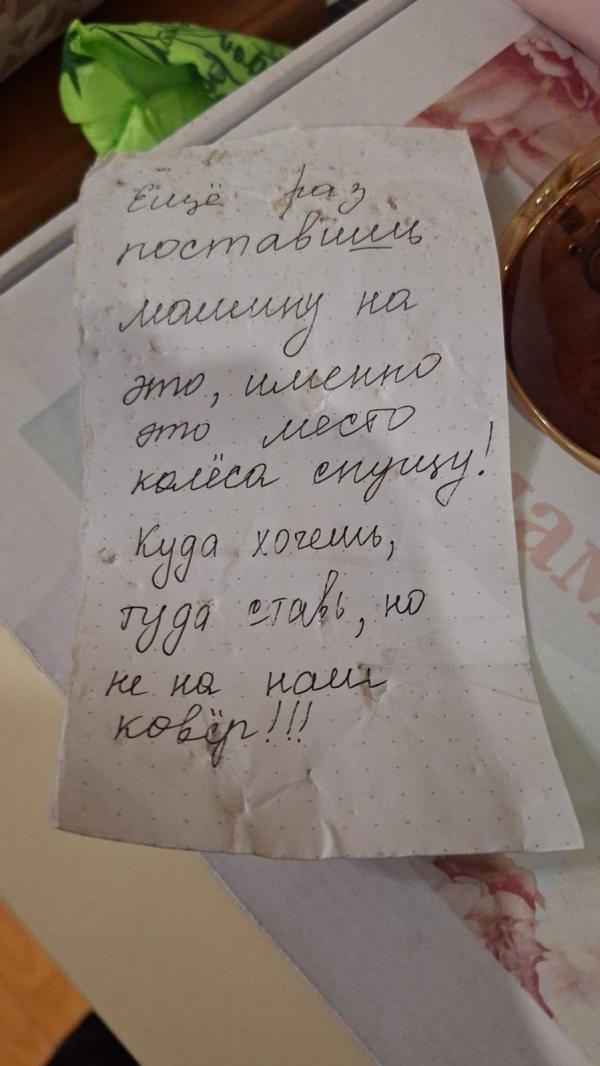 Ещё раз
поставишь
машину на
это, именно
это место
колёса спущу!
Куда хочешь,
туда ставь, но
не на наш
ковёр!!!